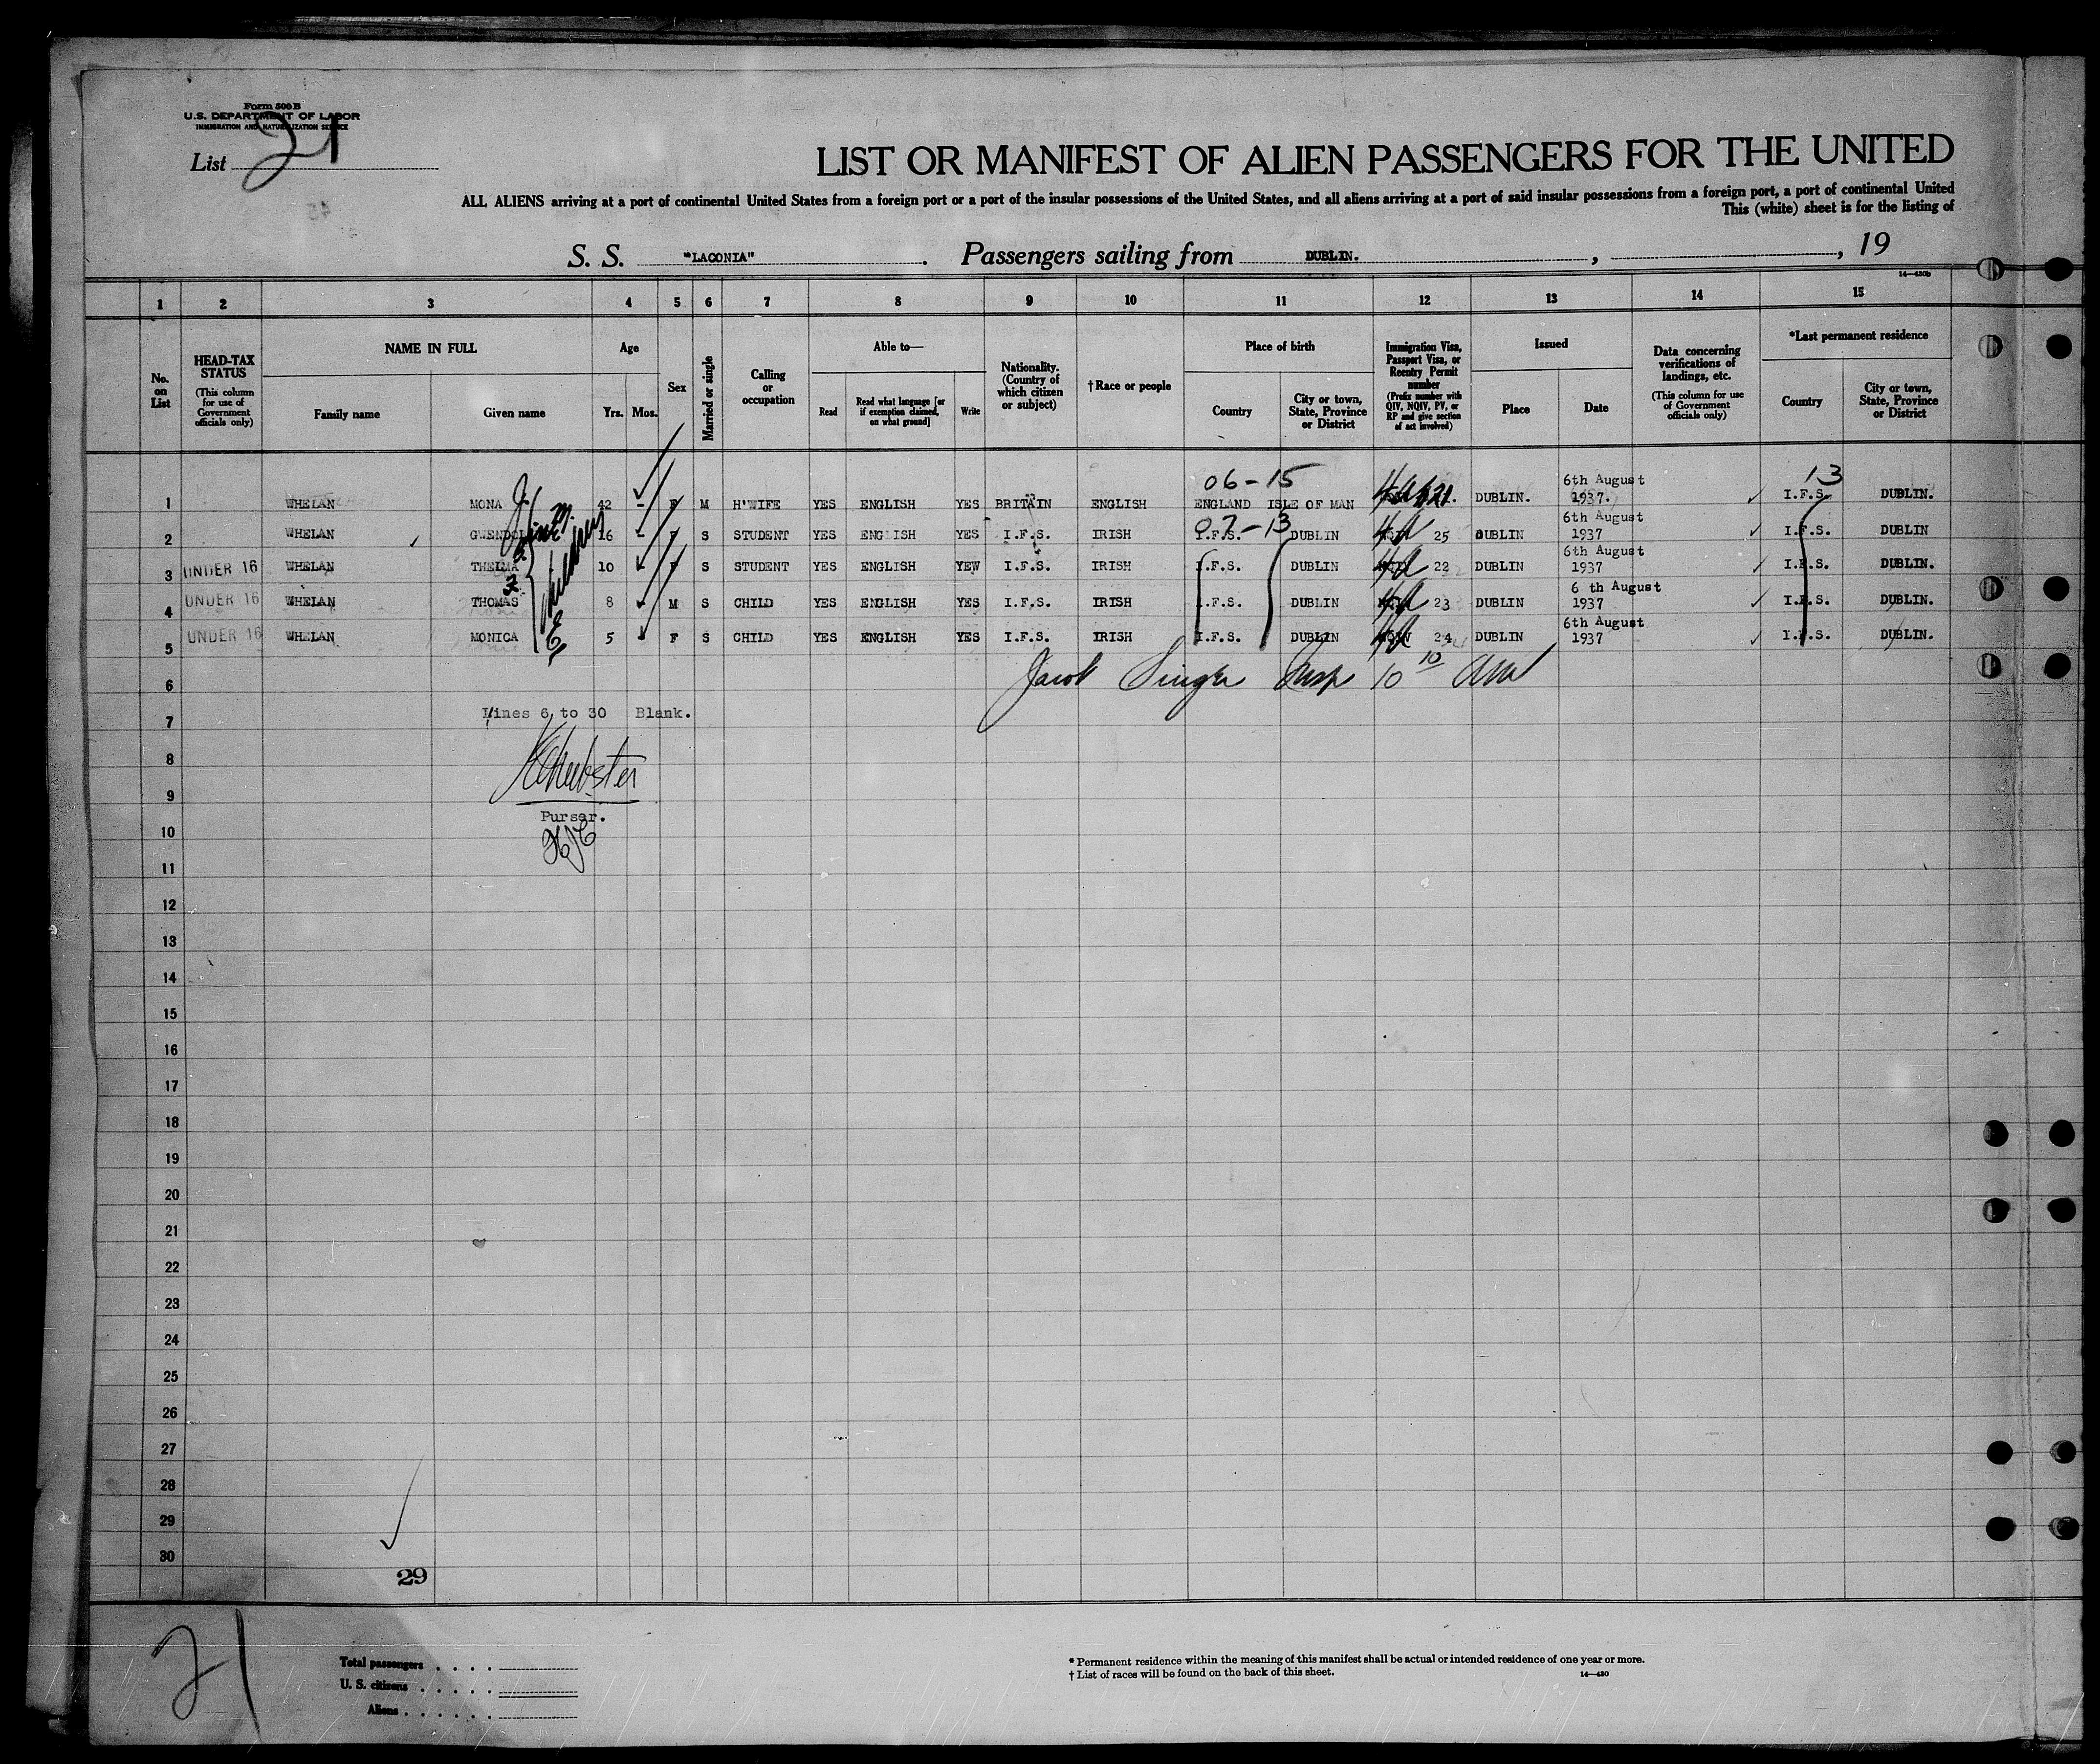 Form 500 B
U.S. DEPARTMENT OF LABOR
IMMIGRATION AND NATURALIZATION SERVICE
List 21
LIST OR MANIFEST OF ALIEN PASSENGERS FOR THE UNITED
ALL ALIENS arriving at a port of continental United States from a foreign port or a port of the insular possessions of the United States, and all aliens arriving at a port of said insular possessions from a foreign port, a port of continental United
This (white) sheet is for the listing of
S. S. "LACONIA". Passengers sailing from DUBLIN. , , 19
14—430b
1 2 3 4 5 6 7 8 9 10 11 12 13 14 15
No. on List
HEAD-TAX STATUS (This column for use of Government officials only)
NAME IN FULL
Family name Given name
Age
Yrs. Mos.
Sex
Married or single
Calling or occupation
Able to—
Read Read what language [or if exemption claimed, on what ground] Write
Nationality. (Country of which citizen or subject)
†Race or people
Place of birth
Country City or town, State, Province or District
Immigration Visa, Passport Visa, or Reentry Permit number (Prefix number with QIV, NQIV, PV, or RP and give section of act involved)
Issued
Place Date
Data concerning verifications of landings, etc. (This column for use of Government officials only)
*Last permanent residence
Country City or town, State, Province or District
06-15 13
1 WHELAN MONA J. 42 - F M H'WIFE YES ENGLISH YES BRITAIN ENGLISH ENGLAND ISLE OF MAN 21. DUBLIN. 6th August 1937. I.F.S. DUBLIN.
07-13
2 WHELAN 16 - F S STUDENT YES ENGLISH YES I.F.S. IRISH I.F.S. DUBLIN 25 DUBLIN 6th August 1937 I.F.S. DUBLIN
3 UNDER 16 WHELAN THELMA 10 F S STUDENT YES ENGLISH YEW I.F.S. IRISH I.F.S. DUBLIN 22 DUBLIN 6th August 1937 I.F.S. DUBLIN.
4 UNDER 16 WHELAN THOMAS 8 M S CHILD YES ENGLISH YES I.F.S. IRISH I.F.S. DUBLIN 23 DUBLIN 6 th August 1937 I.F.S. DUBLIN.
5 UNDER 16 WHELAN MONICA 5 F S CHILD YES ENGLISH YES I.F.S. IRISH I.F.S. DUBLIN 24 DUBLIN 6th August 1937 I.F.S. DUBLIN.
6 Jacob Singer Insp 10 10 AM
7 Lines 6 to 30 Blank.
8
9
10 Purser.
11
12
13
14
15
16
17
18
19
20
21
22
23
24
25
26
27
28
29
30
29
21
Total passengers
U. S. citizens
Aliens
* Permanent residence within the meaning of this manifest shall be actual or intended residence of one year or more.
† List of races will be found on the back of this sheet. 14—430